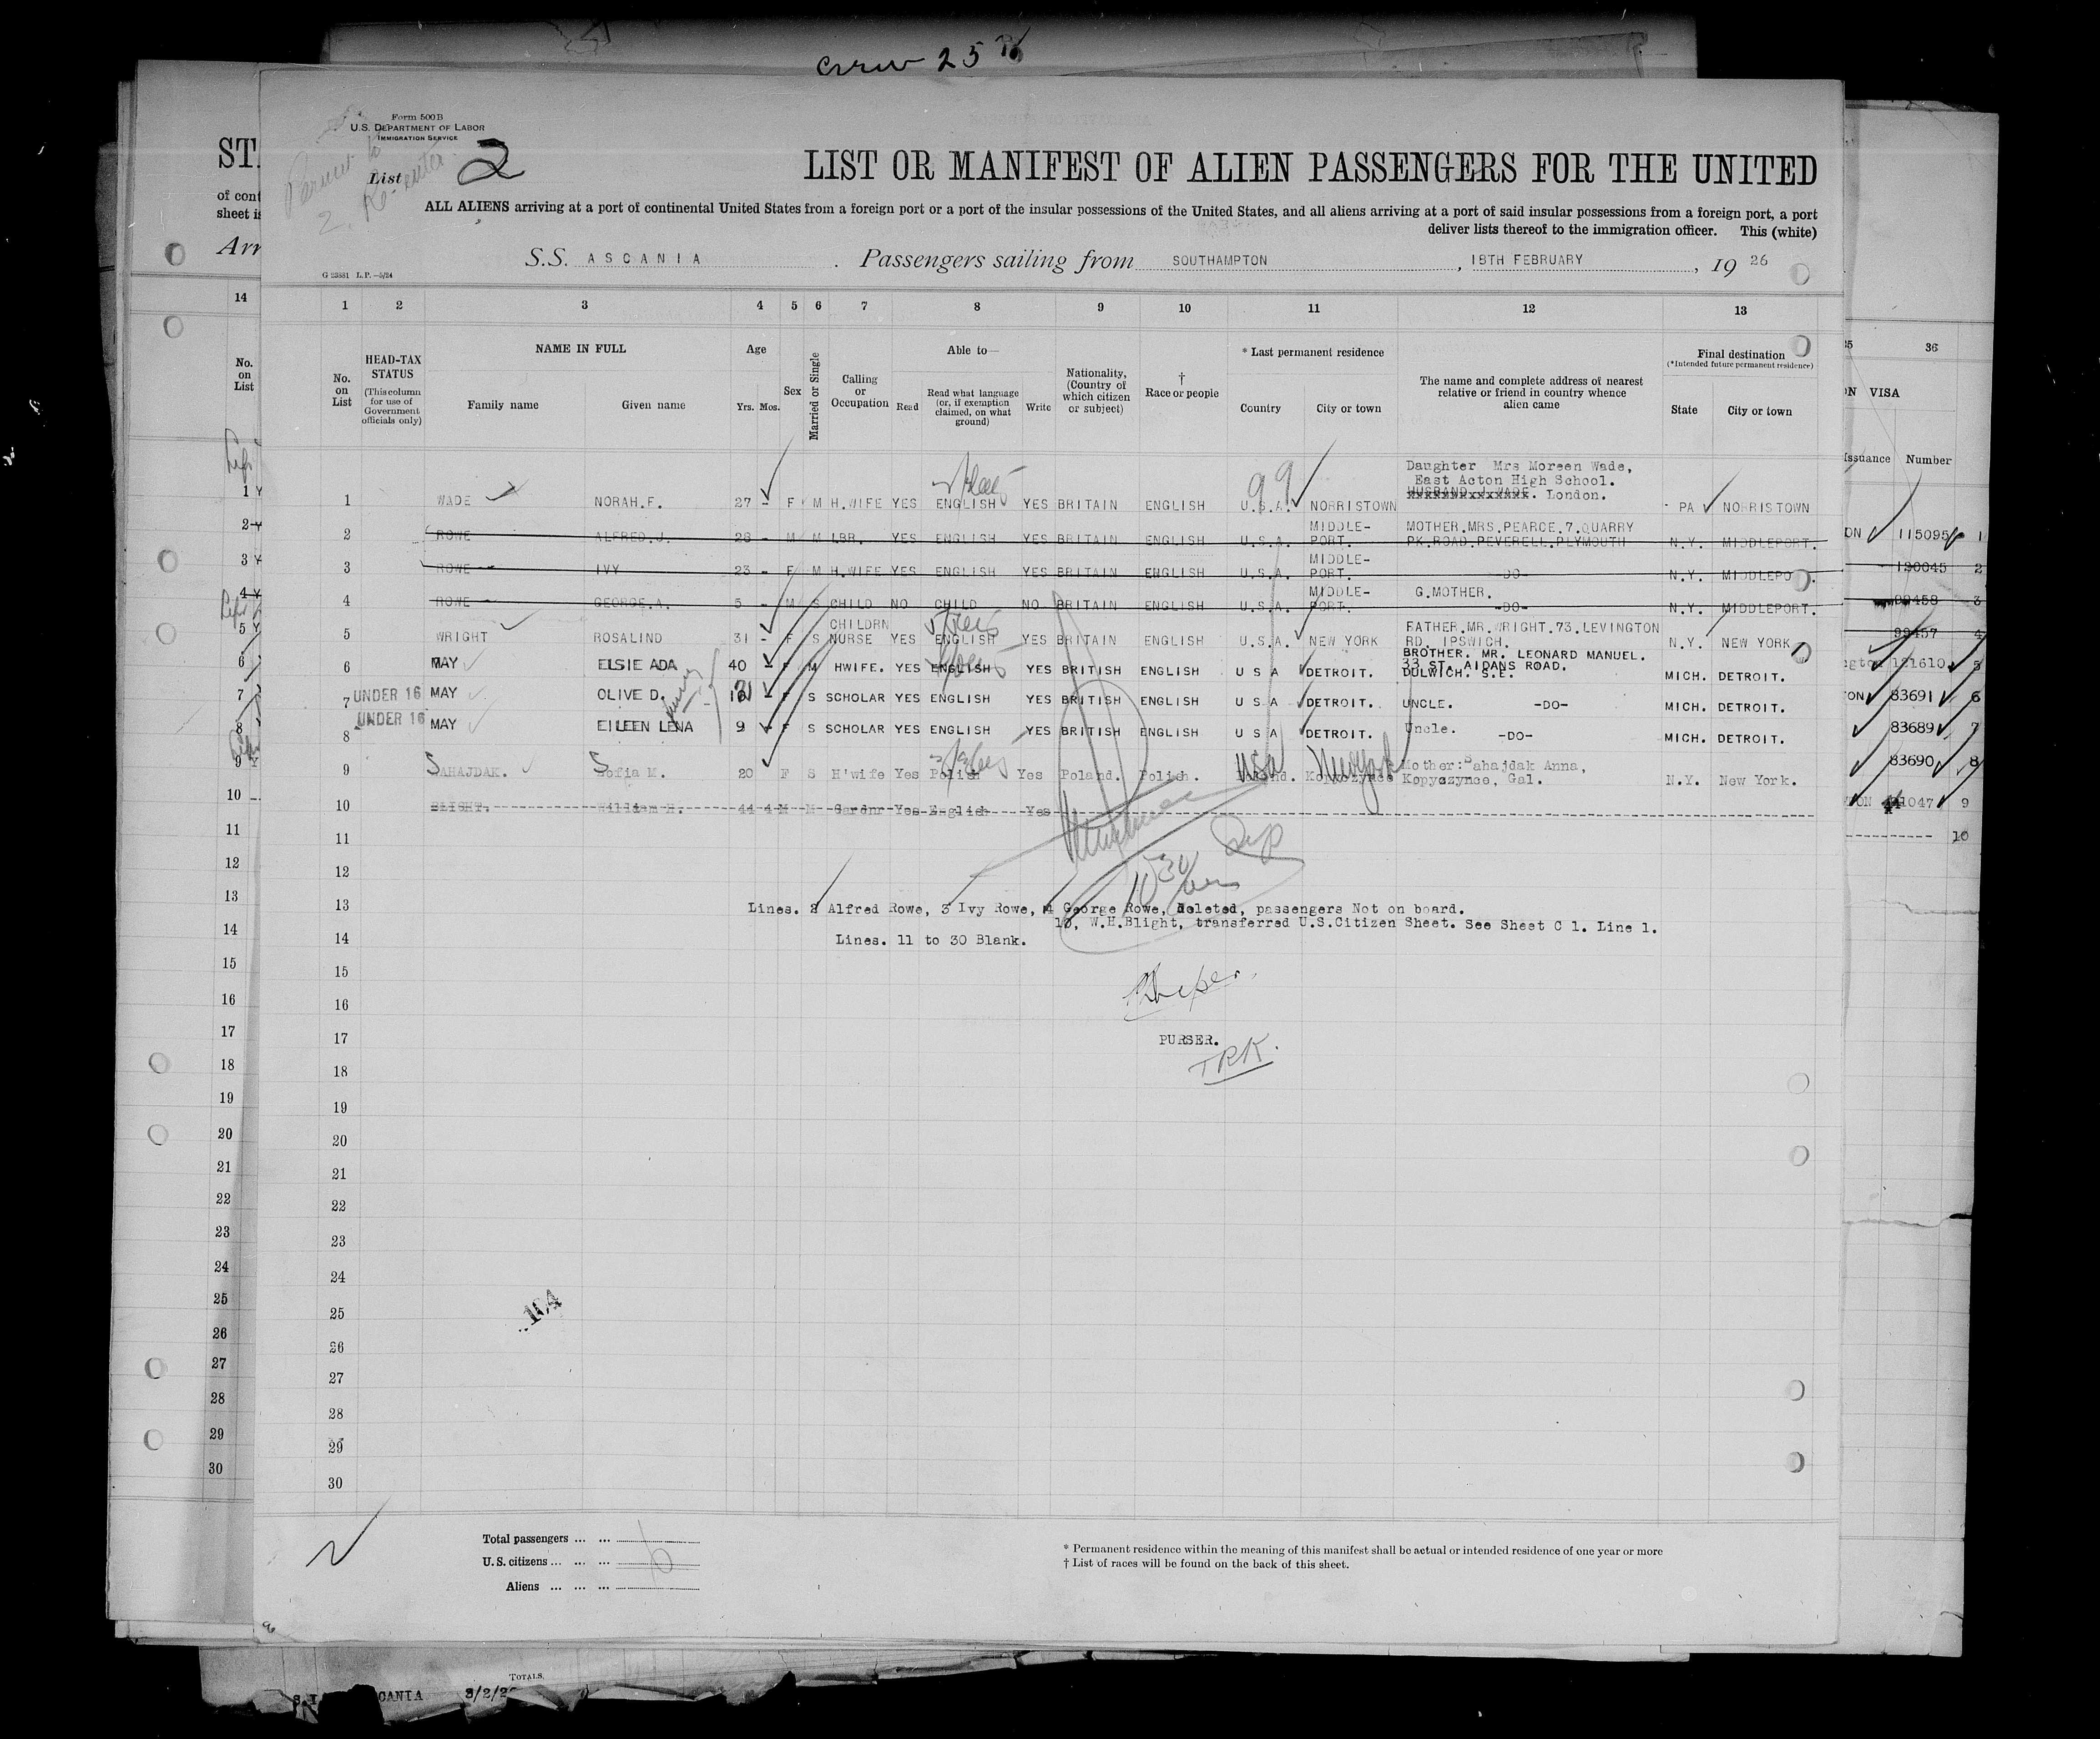 crew 25
Form 500B
U.S. DEPARTMENT OF LABOR
IMMIGRATION SERVICE
List 2
Permit to
Re-enter
2
ST
of cont
sheet is
Arr
LIST OR MANIFEST OF ALIEN PASSENGERS FOR THE UNITED
ALL ALIENS arriving at a port of continental United States from a foreign port or a port of the insular possessions of the United States, and all aliens arriving at a port of said insular possessions from a foreign port, a port
deliver lists thereof to the immigration officer. This (white)
S.S. ASCANIA. Passengers sailing from SOUTHAMPTON, 18TH FEBRUARY, 19 26
G 23881 L.P.—5/24
14 1 2 3 4 5 6 7 8 9 10 11 12 13 36
No. on List
No. on List
HEAD-TAX STATUS
(This column for use of Government officials only)
NAME IN FULL
Family name Given name
Age
Yrs. Mos.
Sex
Married or Single
Calling or Occupation
Able to—
Read
Read what language (or, if exemption claimed, on what ground)
Write
Nationality, (Country of which citizen or subject)
† Race or people
* Last permanent residence
Country City or town
The name and complete address of nearest relative or friend in country whence alien came
Final destination
(*Intended future permanent residence)
State City or town
VISA
Issuance Number
Daughter Mrs Moreen Wade,
East Acton High School.
1 WADE NORAH.F. 27 - F M H.WIFE YES ENGLISH YES BRITAIN ENGLISH U.S.A. 99 NORRISTOWN HUSBAND.J.WADE. London. PA NORRISTOWN
2 ROWE ALFRED.J. 28 - M M LBR. YES ENGLISH YES BRITAIN ENGLISH U.S.A. MIDDLE-PORT. MOTHER.MRS.PEARCE.7.QUARRY PK.ROAD.PEVERELL.PLYMOUTH N.Y. MIDDLEPORT. 115095 1
3 ROWE IVY 23 - F M H.WIFE YES ENGLISH YES BRITAIN ENGLISH U.S.A. MIDDLE-PORT. -DO- N.Y. MIDDLEPO. 120045 2
4 ROWE GEORGE.A. 5 - M S CHILD NO CHILD NO BRITAIN ENGLISH U.S.A. MIDDLE-PORT. G.MOTHER. -DO- N.Y. MIDDLEPORT. 99458 3
5 WRIGHT ROSALIND 31 - F S CHILDRN NURSE YES ENGLISH YES BRITAIN ENGLISH U.S.A. NEW YORK FATHER.MR.WRIGHT.73.LEVINGTON RD. IPSWICH. N.Y. NEW YORK 99457 4
6 MAY ELSIE ADA 40 - F M HWIFE. YES ENGLISH YES BRITISH ENGLISH U S A DETROIT. BROTHER. MR. LEONARD MANUEL. 33 ST. AIDANS ROAD. DULWICH. S.E. MICH. DETROIT. 121610 5
7 UNDER 16 MAY OLIVE D. - F S SCHOLAR YES ENGLISH YES BRITISH ENGLISH U S A DETROIT. UNCLE. -DO- MICH. DETROIT. 83691 6
8 UNDER 16 MAY EILEEN LENA 9 - F S SCHOLAR YES ENGLISH YES BRITISH ENGLISH U S A DETROIT. Uncle. -DO- MICH. DETROIT. 83689 7
9 SAHAJDAK. Sofia M. 20 F S H'wife Yes Polish Yes Poland. Polish. USA New York Mother: Sahajdak Anna, Kopyczynce, Gal. N.Y. New York. 83690 8
10 BLIGHT. William H. 44 4 M M Gardnr Yes English Yes 1047 9
10
11
12
13 Lines. 2 Alfred Rowe, 3 Ivy Rowe, 4 George Rowe, deleted, passengers Not on board.
10, W.H.Blight, transferred U.S.Citizen Sheet. See Sheet C 1. Line 1.
14 Lines. 11 to 30 Blank.
15
16
17 PURSER.
TRK.
18
19
20
21
22
23
24
25
26
27
28
29
30
Total passengers ... ...
U.S. citizens ... ... ...
Aliens ... ... ...
6
* Permanent residence within the meaning of this manifest shall be actual or intended residence of one year or more
† List of races will be found on the back of this sheet.
TOTALS.
CANIA